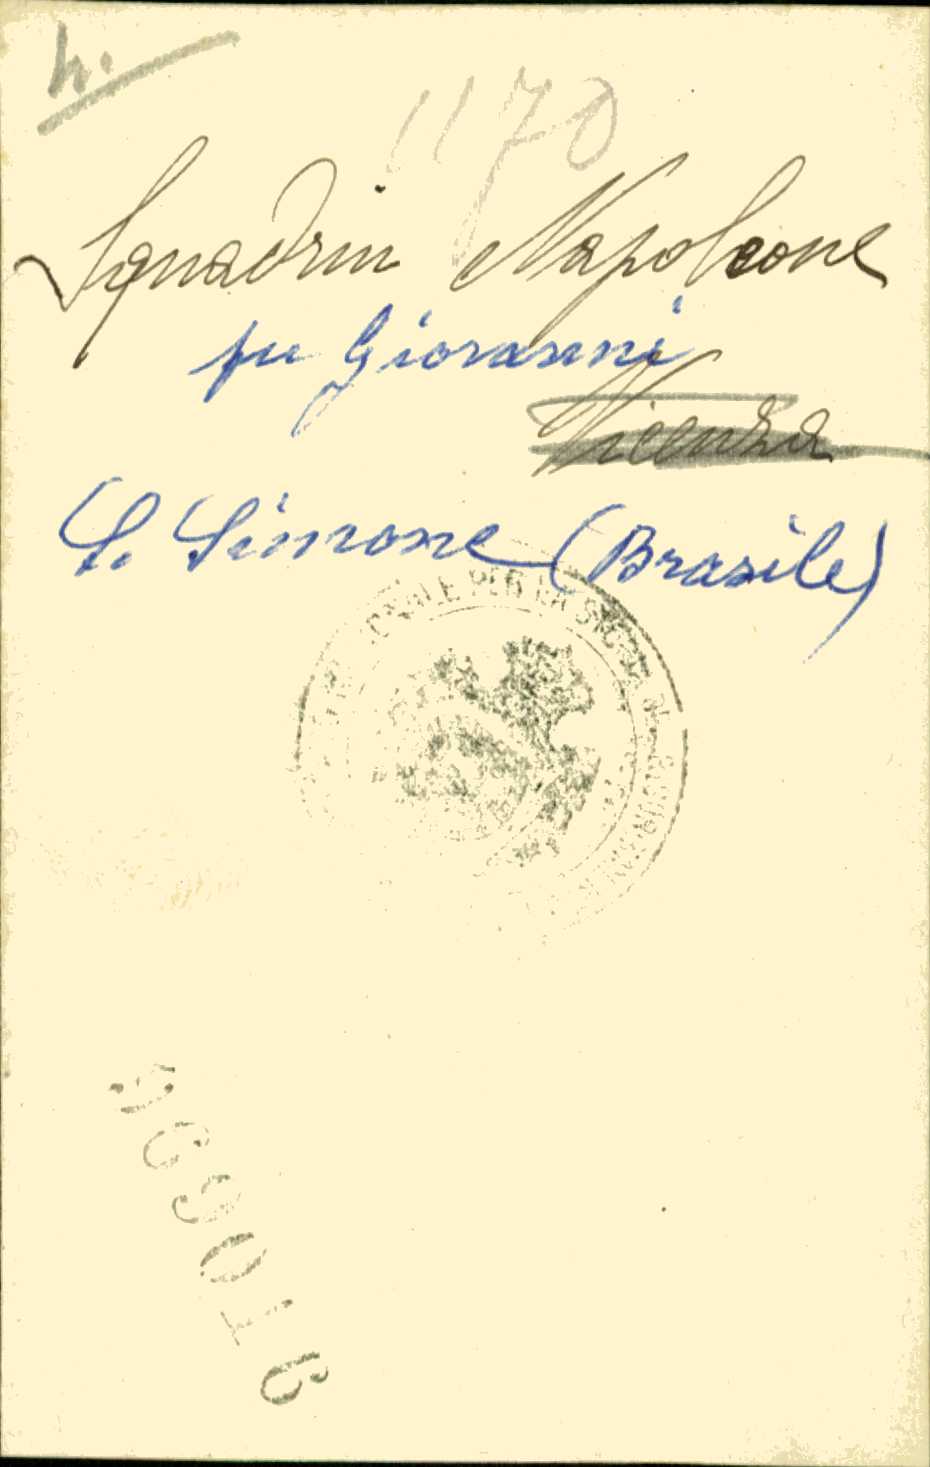 h.
1170
Squadrin Napoleone
fu Giovanni
Vicenza
S. Simone (Brasile)
NALE PER LA STORIA DEL
969016